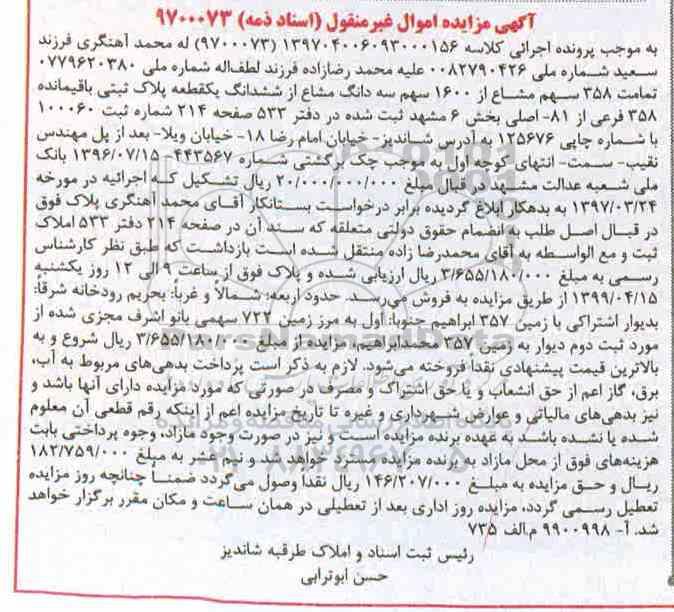 آگهی مزایده اموال غیرمنقول (اسناد ذمه) ۹۷۰۰۰۷۳
به موجب پرونده اجرائی کلاسه ۱۳۹۷۰۴۰۰۶۰۹۳۰۰۰۱۵۶ (۹۷۰۰۰۷۳) له محمد آهنگری فرزند
سعید شماره ملی ۰۰۸۲۷۹۰۴۲۶ علیه محمد رضازاده فرزند لطف‌اله شماره ملی ۰۷۷۹۶۲۰۳۸۰
تمامت ۳۵۸ سهم مشاع از ۱۶۰۰ سهم سه دانگ مشاع از ششدانگ یکقطعه پلاک ثبتی باقیمانده
۳۵۸ فرعی از ۸۱- اصلی بخش ۶ مشهد ثبت شده در دفتر ۵۳۳ صفحه ۲۱۴ شماره ثبت ۱۰۰۰۶۰
با شماره چاپی ۱۲۵۶۷۶ به آدرس شاندیز- خیابان امام رضا ۱۸- خیابان ویلا- بعد از پل مهندس
نقیب- سمت- انتهای کوچه اول به موجب چک برگشتی شماره ۴۴۳۵۶۷- ۱۳۹۶/۰۷/۱۵ بانک
ملی شعبه عدالت مشهد در قبال مبلغ ۲۰/۰۰۰/۰۰۰/۰۰۰ ریال تشکیل که اجرائیه در مورخه
۱۳۹۷/۰۳/۲۴ به بدهکار ابلاغ گردیده برابر درخواست بستانکار آقای محمد آهنگری پلاک فوق
در قبال اصل طلب به انضمام حقوق دولتی متعلقه که سند آن در صفحه ۲۱۴ دفتر ۵۳۳ املاک
ثبت و مع الواسطه به آقای محمدرضا زاده منتقل شده است بازداشت که طبق نظر کارشناس
رسمی به مبلغ ۳/۶۵۵/۱۸۰/۰۰۰ ریال ارزیابی شده و پلاک فوق از ساعت ۹ الی ۱۲ روز یکشنبه
۱۳۹۹/۰۴/۱۵ از طریق مزایده به فروش می‌رسد. حدود اربعه: شمالاً و غرباً: بحریم رودخانه شرقاً:
بدیوار اشتراکی با زمین ۳۵۷ ابراهیم جنوبا: اول به مرز زمین ۷۲۲ سهمی بانو اشرف مجزی شده از
مورد ثبت دوم دیوار به زمین ۳۵۷ محمدابراهیم، مزایده از مبلغ ۳/۶۵۵/۱۸۰/۰۰۰ ریال شروع و به
بالاترین قیمت پیشنهادی نقداً فروخته می‌شود. لازم به ذکر است پرداخت بدهی‌های مربوط به آب،
برق، گاز اعم از حق انشعاب و یا حق اشتراک و مصرف در صورتی که مورد مزایده دارای آنها باشد و
نیز بدهی‌های مالیاتی و عوارض شهرداری و غیره تا تاریخ مزایده اعم از اینکه رقم قطعی آن معلوم
شده یا نشده باشد به عهده برنده مزایده است و نیز در صورت وجود مازاد، وجوه پرداختی بابت
هزینه‌های فوق از محل مازاد به برنده مزایده مسترد خواهد شد و نیم عشر به مبلغ ۱۸۲/۷۵۹/۰۰۰
ریال و حق مزایده به مبلغ ۱۴۶/۲۰۷/۰۰۰ ریال نقداً وصول می‌گردد ضمناً چنانچه روز مزایده
تعطیل رسمی گردد، مزایده روز اداری بعد از تعطیلی در همان ساعت و مکان مقرر برگزار خواهد
شد. آ- ۹۹۰۰۹۹۸ م.الف ۷۳۵
رئیس ثبت اسناد و املاک طرقبه شاندیز
حسن ابوترابی